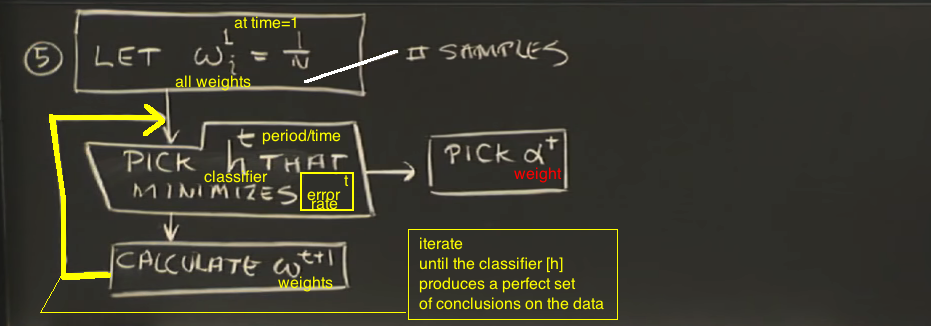 at time=1
⑤ LET ω_i^1 = 1/N # SAMPLES
all weights
PICK h^t THAT period/time
classifier
MINIMIZES error rate t
PICK α^t
weight
CALCULATE ω^t+1
weights
iterate
until the classifier [h]
produces a perfect set
of conclusions on the data